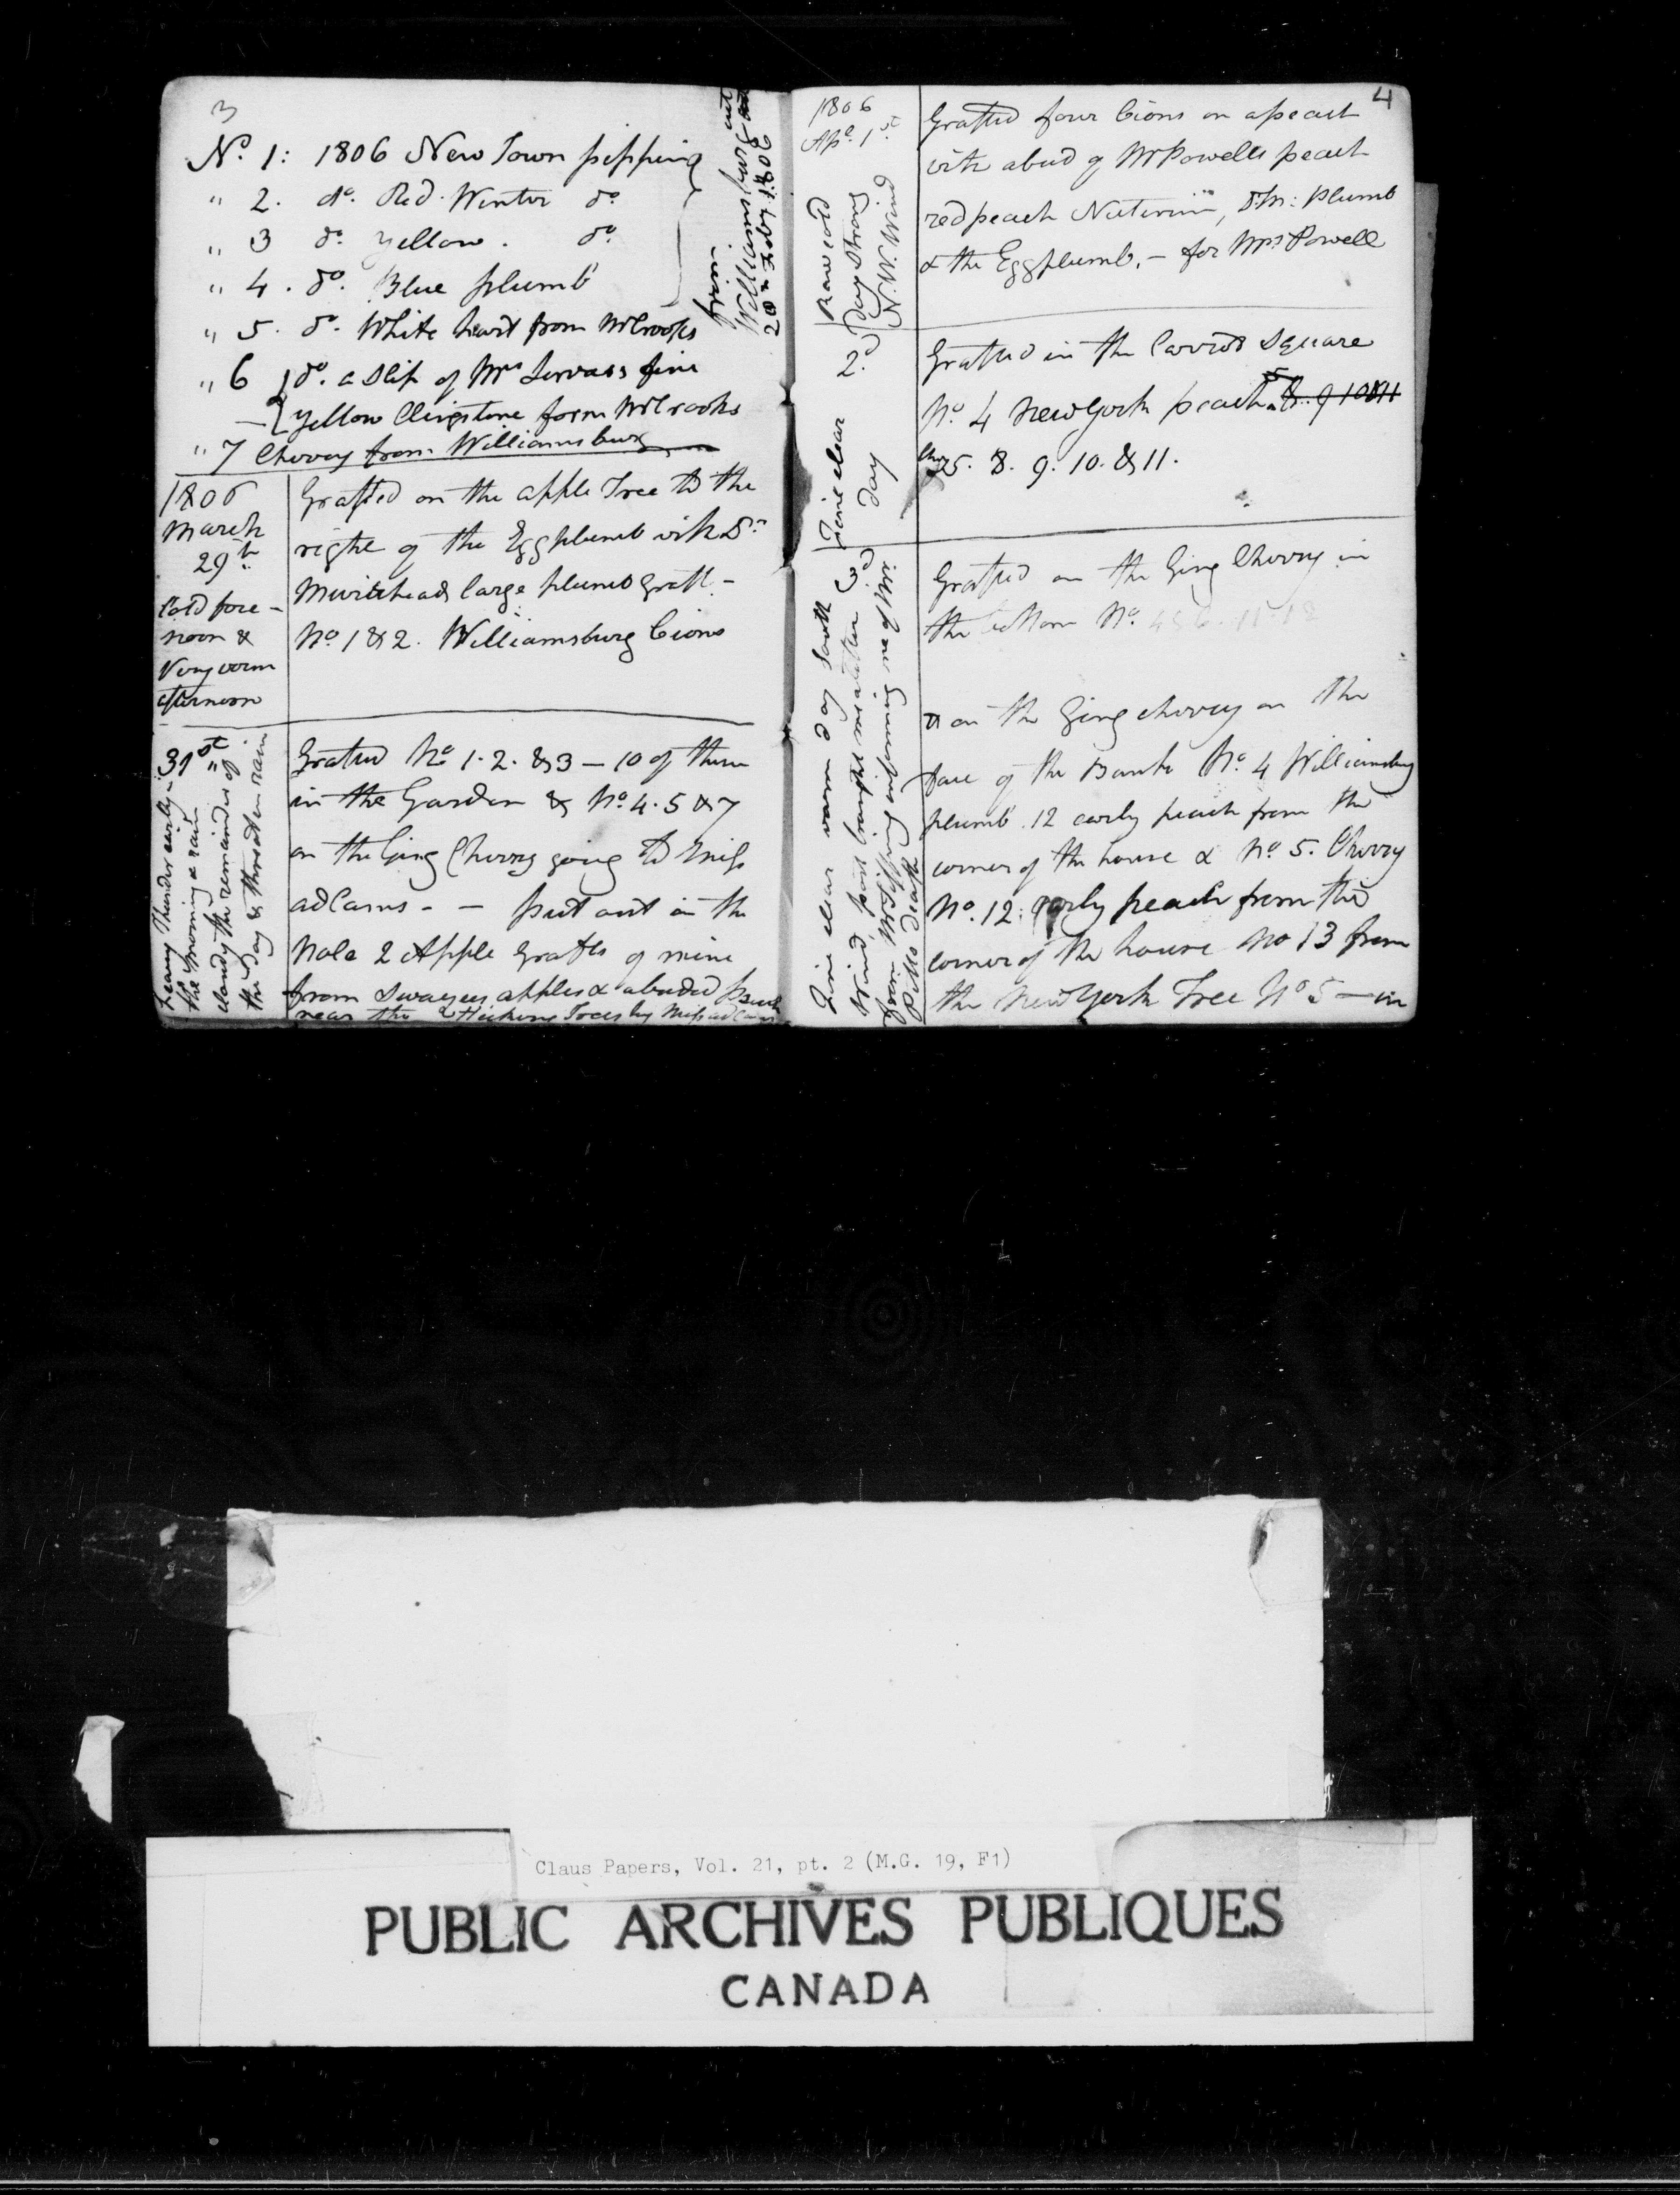 3
No. 1: 1806 New Town pipping
" 2. do. Red Winter do
" 3 do. Yellow . do.
" 4 . do. Blue plumb
from
Williamsburg cut
20th Feby 1806
" 5. do. White heart from Mr Crooks
" 6 do. a Slip of Mrs fine
yellow Clingstone form Mr Crooks
" 7 Cherry from Williamsburg
1806
March
29th
Cold fore-
noon &
Very worm
afternoon
Grafted on the apple Tree to the
right of the Eggplumb with Dr
Muirheads large plumb Graft -
No. 1 & 2. Williamsburg Cions
31st
heavy Thunder early in
the morning & rain
cloudy the remainder of
the day & threaten rain
Grafted No 1. 2. & 3 - 10 of them
in the Garden & No. 4. 5 & 7
on the Ging Cherry going to Miss
adCams - - put out in the
hole 2 Apple Grafts of mine
from Swayzes apples & a budded peach
near the 2 Hickory Trees by Miss adCams
4
1806
Apl. 1st
Raw cold
day Strong
N. W. Wind
Grafted four Cions on a peach
with a bud of Mr Powells peach
red peach Dr M: Plumb
& the Eggplumb. - for Mrs Powell
2d.
Fine clear
day
Grafted in the Carrot Square
No. 4 New York peach 5 8.. 9 10 & 11
5. 8. 9. 10. & 11.
3d
Fine clear warm day South
Wind, post brought me a letter
from informing me of Mr.
Pitts Death
Grafted on the Ging Cherry in
the bottom No. 4 5 6. 11. 12
& on the Ging cherry on the
face of the Bank No. 4 Williamsburg
plumb. 12 early peach from the
corner of the house & No. 5. Cherry
No. 12: early peach from the
corner of the house No 13 from
the New York Tree No 5 - in
Claus Papers, Vol. 21, pt. 2 (M.G. 19, F1)
PUBLIC ARCHIVES PUBLIQUES
CANADA